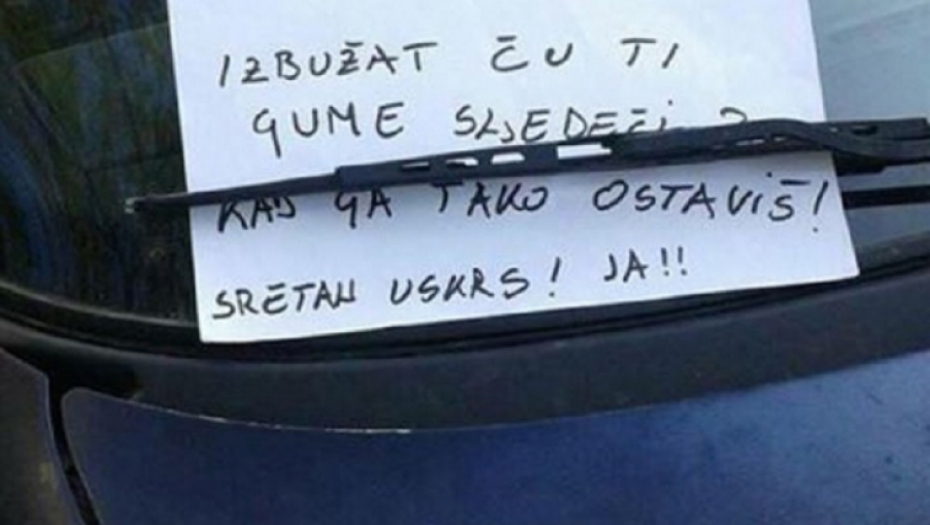 IZBUŽAT ČU TI
GUME SLJEDEČI
KAD GA TAKO OSTAVIŠ!
SRETAN USKRS! JA!!